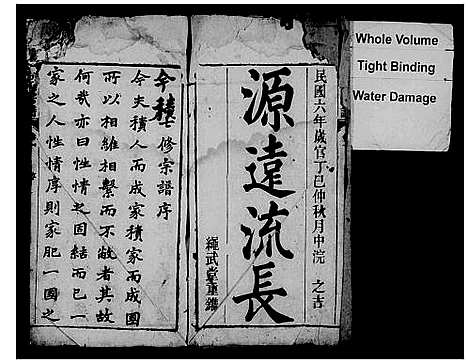 民國六年歲官丁巳仲秋月中浣 之吉
源遠流長
繩武堂重鐫
六修宗譜序
今夫積人而成家積家而成國
所以相維相繫而不敝者其故
何哉亦曰性情之固結而已一
家之人性情序則家肥一國之
Whole Volume
Tight Binding
Water Damage